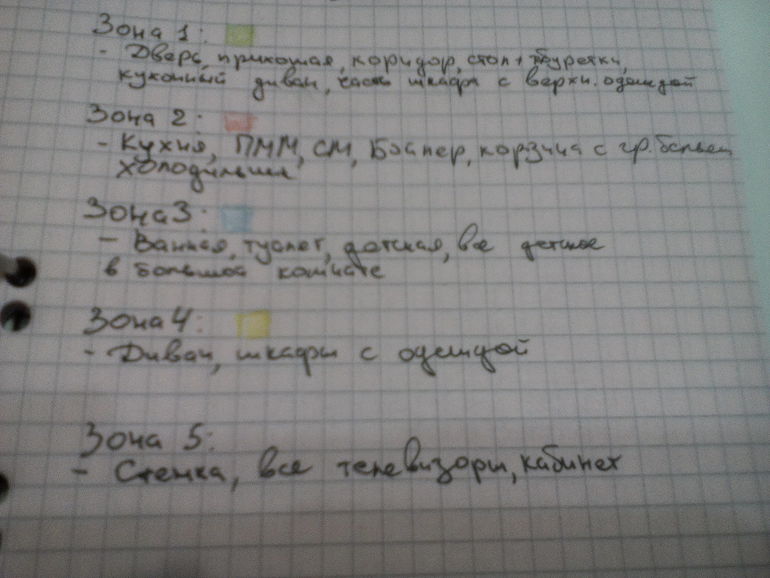 Зона 1:
- Дверь, прихожая, коридор, стол + табуретки,
кухонный диван, часть шкафа с верхн. одеждой
Зона 2:
- Кухня, ПММ, СМ, корзина с гр. бельем
холодильник
Зона 3:
- Ванная, туалет, детская, все детское
в большой комнате
Зона 4:
- Диван, шкафы с одеждой
Зона 5:
- Стенка, все телевизоры, кабинет